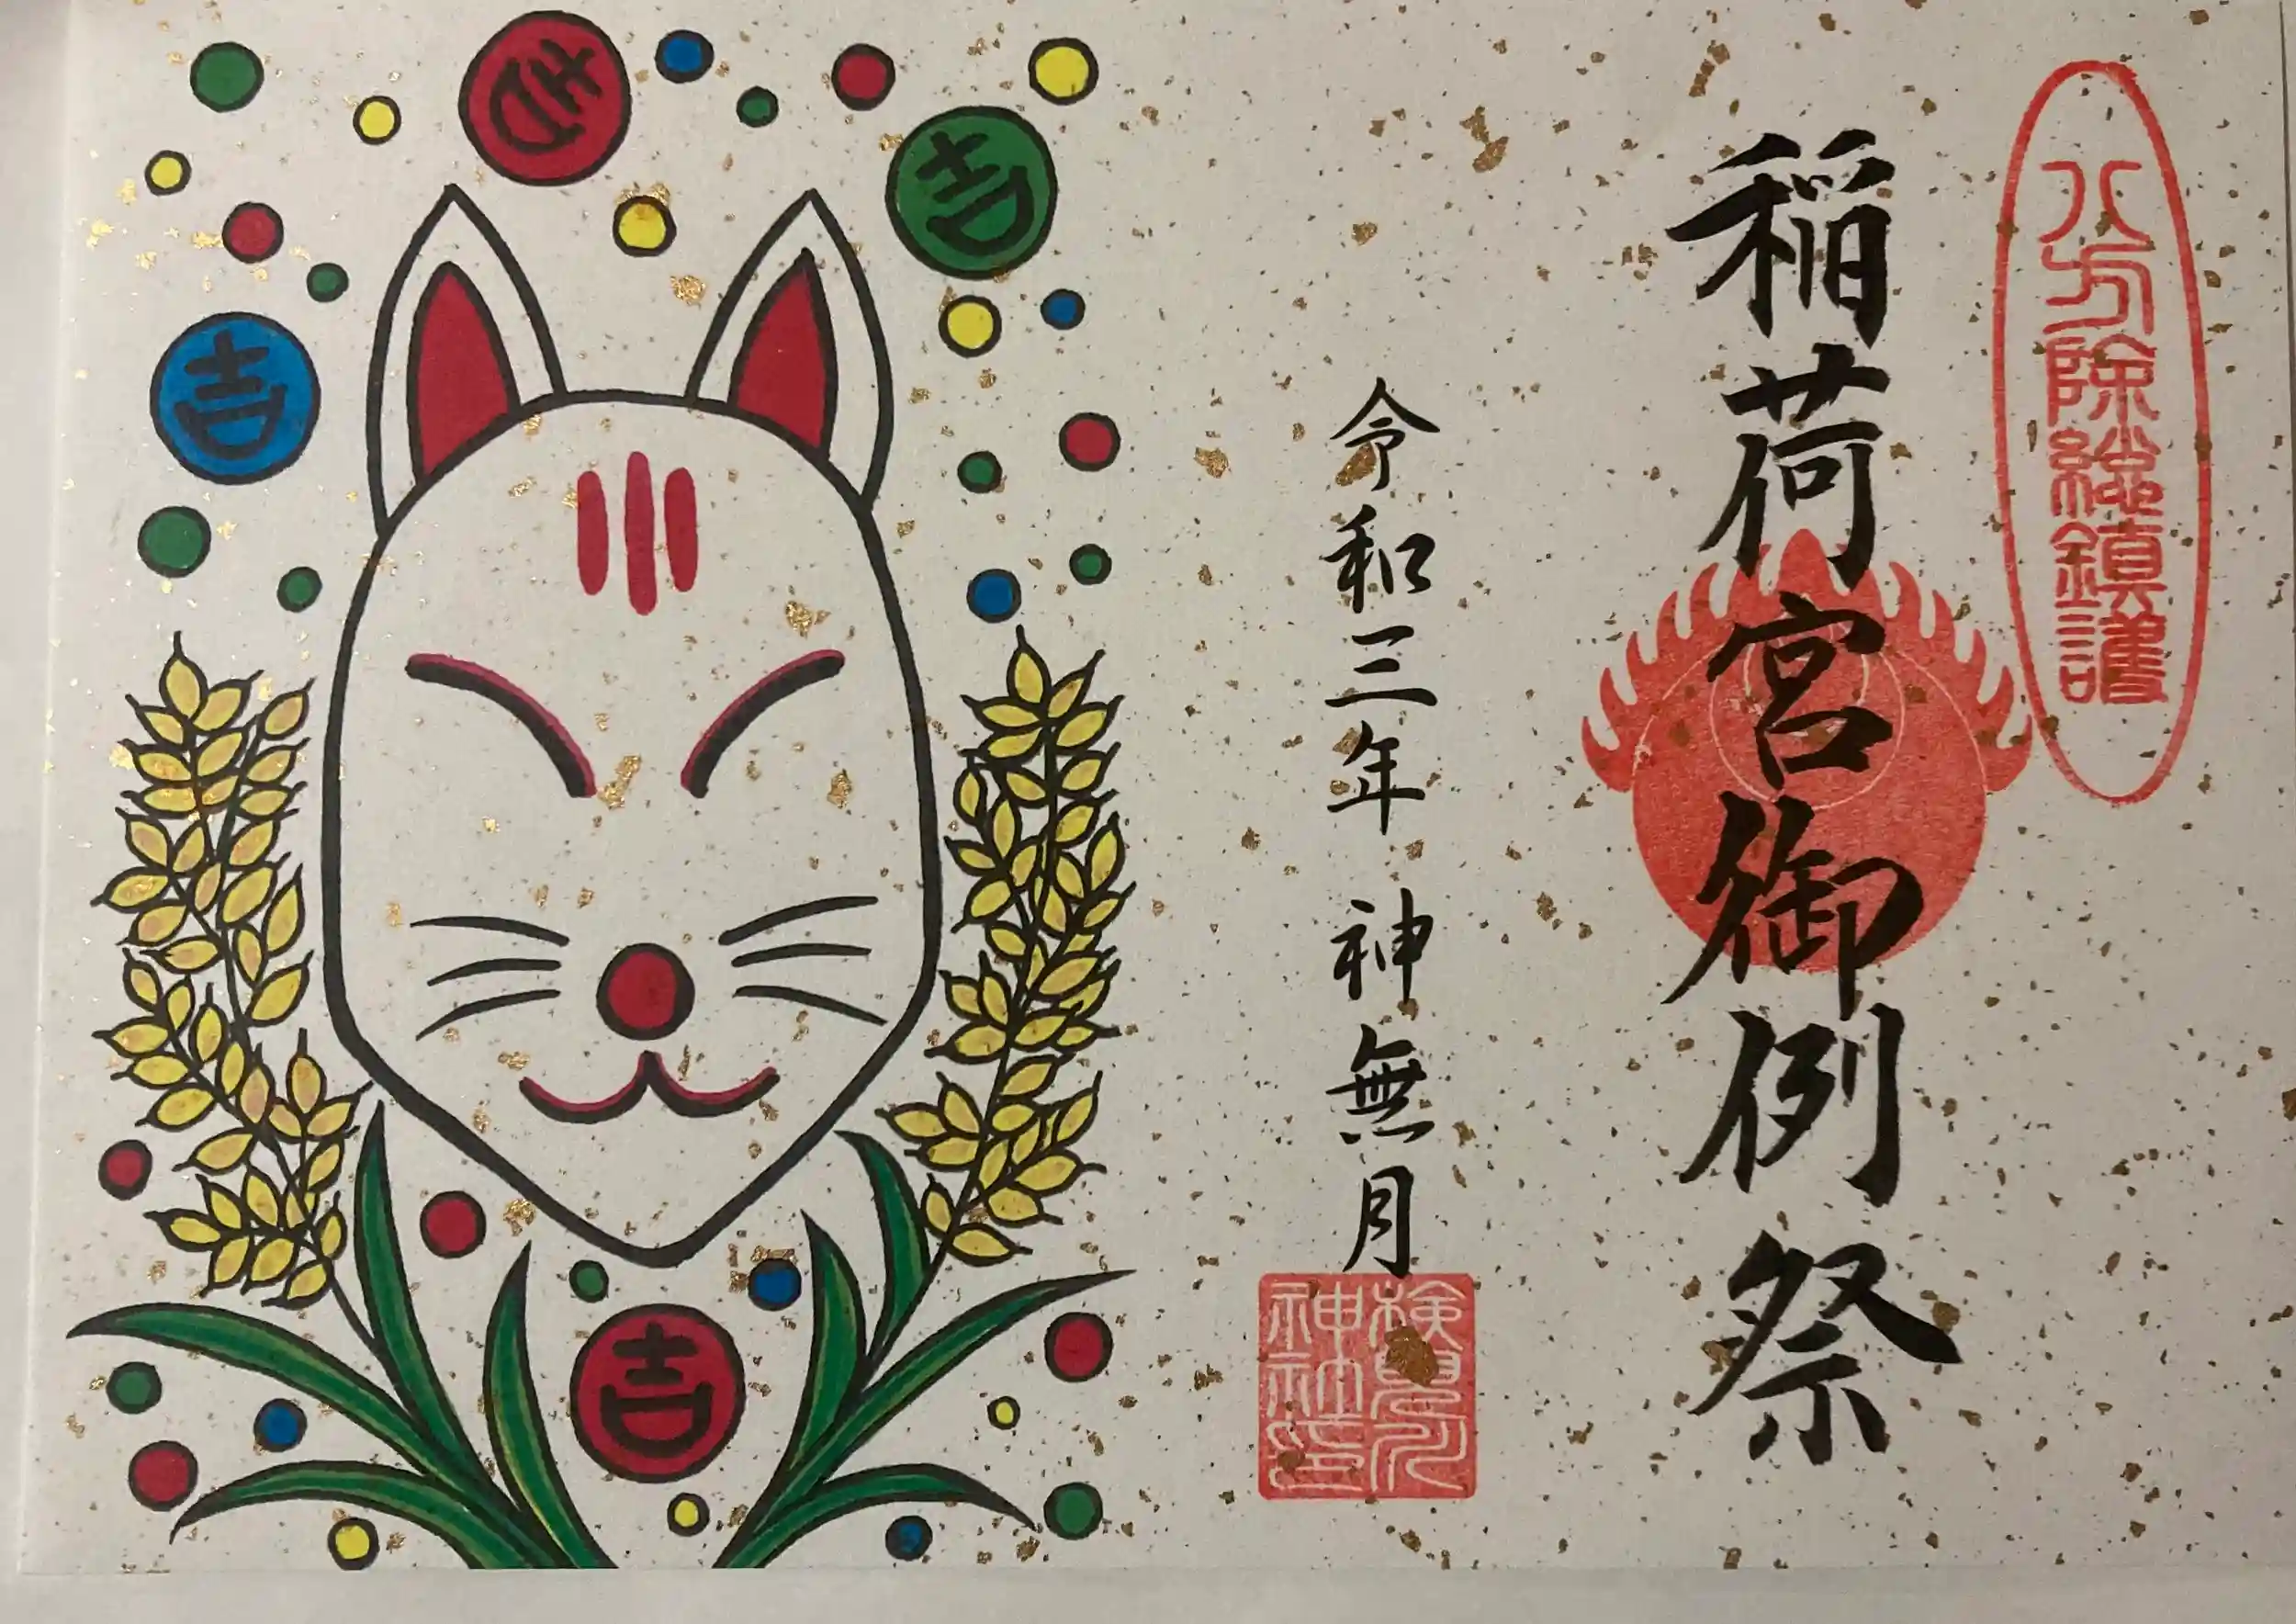 八方除総鎮護
稲荷宮御例祭
令和三年 神無月
検見川
神社之印
吉
吉
吉
吉